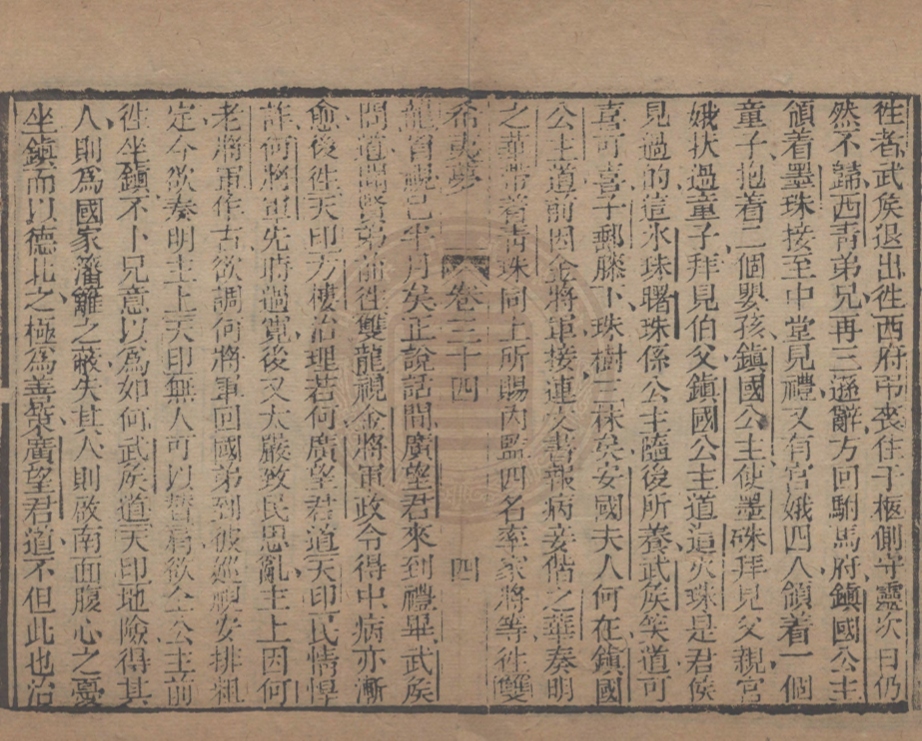 徃者武侯退出徃西府弔喪住于柩側守靈次日仍
然不歸西青弟兄再三遜辭方回駙馬府鎮國公主
領着墨珠接至中堂見禮又有宮娥四人領着一個
童子抱着二個嬰孩鎮國公主使墨硃拜見父親宮
娥扶過童子拜見伯父鎮國公主道這火珠是君侯
見過的這氷珠曙珠係公主隨後所養武侯笑道可
喜可喜子郵滕下珠樹三株矣安國夫人何在鎮國
公主道前因金將軍接連文書報病妾偕之華奏明
之華帶着青珠同上所賜內監四名率家將等徃雙
希夷夢 卷三十四 四
龍省視已半月矣正說話間廣望君來到禮畢武侯
問道聞賢弟前徃雙龍視金將軍政令得中病亦漸
愈後徃天印方樓治理若何廣望君道天印民情悍
詐何將軍先時過寬後又太嚴致民思亂主上因何
老將軍作古欲調何將軍回國弟到彼巡視安排粗
定今欲奏明主上天印無人可以替焉欲令公主前
徃坐鎮不卜兄意以為如何武侯道天印地險得其
人則為國家藩籬之蔽失其人則啟南面腹心之憂
坐鎮而以德化之極為善策廣望君道不但此也治